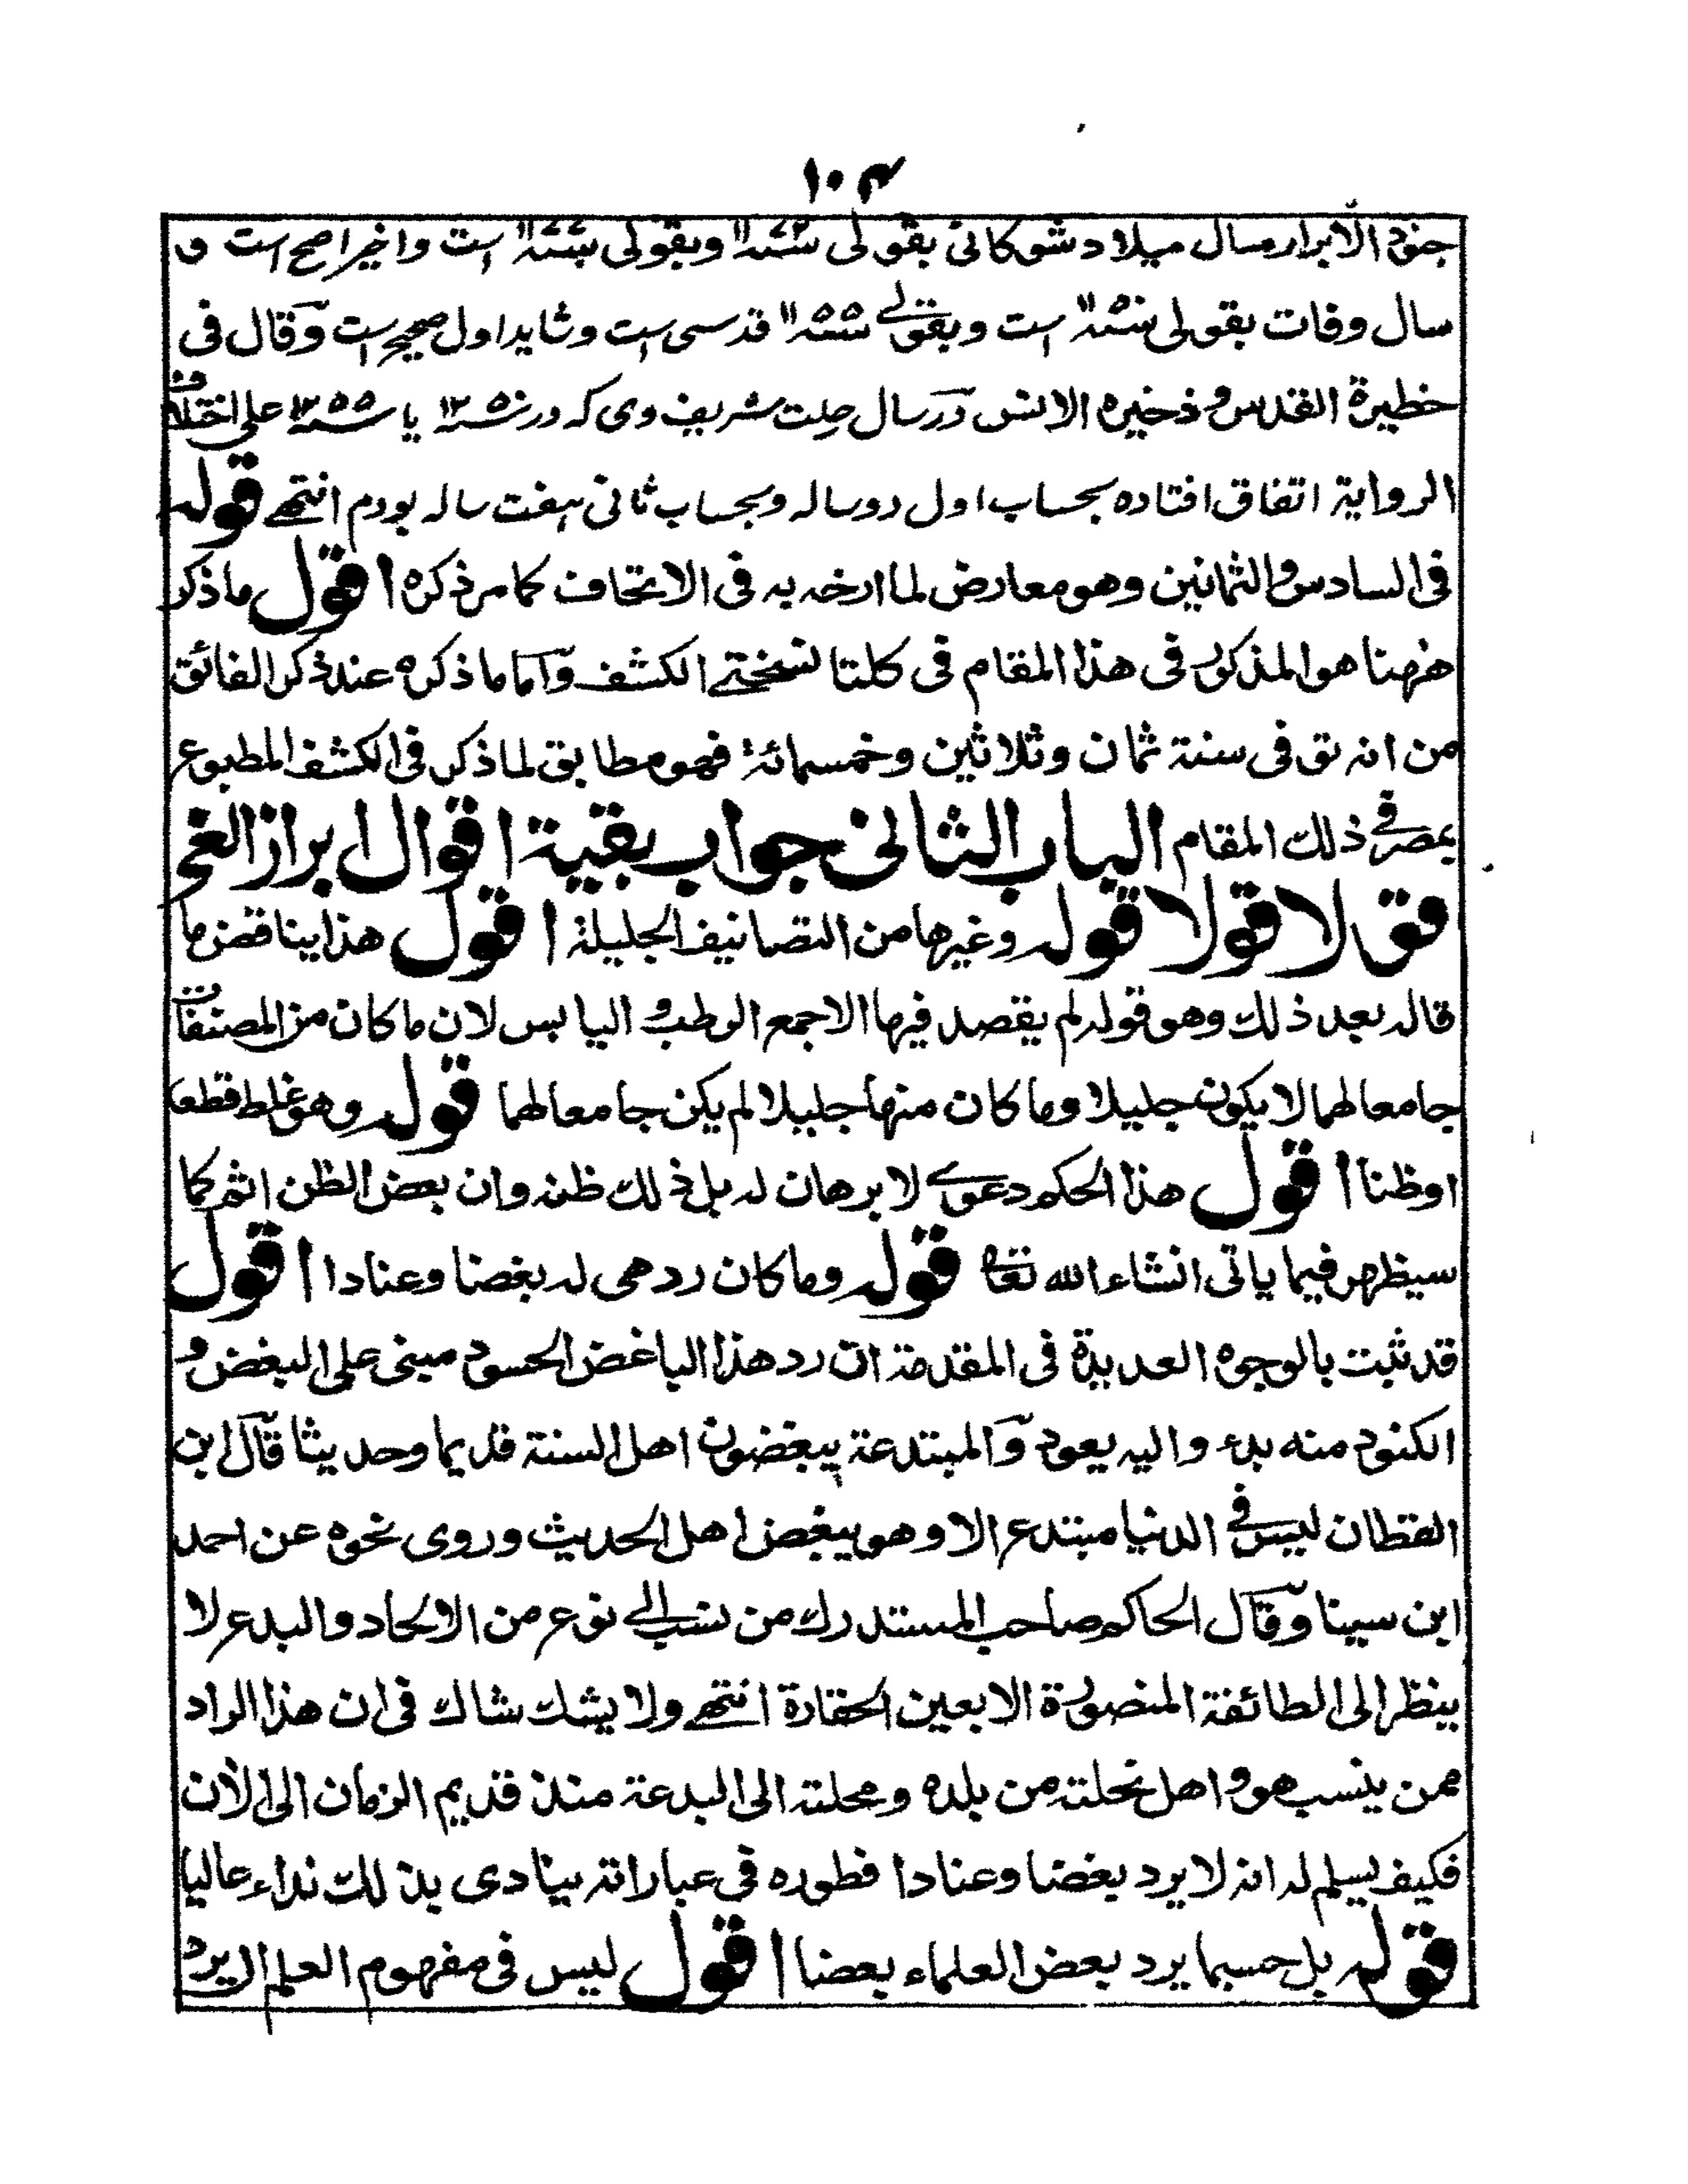 ۱۰۴
الابرار سال میلاد شوکانی بقولی و بقولی است و اخیر اصح است و
سال وفات بقولی است و بقولے قدسی است و شاید اول صحیح است وقال فی
خطیرة القدس و ذخیره الانس در سال حلت شریف وی که در یا علی اختلاف
الروایة اتفاق افتاده بحساب اول دو ساله و بحساب ثانی هفت ساله بودم انتھے قوله
فی السادس والثمانین وهو معارض لما ارخه به فی الاتحاف کما مر ذکره اقول ما ذکر
ههنا هو المذکور فی هذا المقام فی کلتا نسختے الکشف واما ما ذکره عند ذکر الفائق
من انه توفی سنة ثمان وثلاثین وخمسمائة فهو مطابق لما ذکر فی الکشف المطبوع
بمصر فی ذلك المقام الباب الثانی جواب بقیة اقوال ابراز الغی
قولا قولا قوله وغیرها من التصانیف الجلیلة اقول هذا یناقض ما
قاله بعد ذلك وهو قوله لم یقصد فیها الا جمع الرطب و الیابس لان ما کان من المصنفات
جامعا لهما لا یکون جلیلا وما کان منها جلیلا لم یکن جامعا لهما قوله وهو غلط قطعا
او ظنا اقول هذا الحکم دعوے لا برهان له بل ذلك ظنه وان بعض الظن اثم کما
سیظهر فیما یاتی انشاء الله تعا قوله وما کان ردهی له بغضا وعنادا اقول
قد ثبت بالوجوه العدیدة فی المقدمة ان رد هذا الباغض الحسود مبنی علی البغض و
الکنود منه بدء والیه یعود والمبتدعة یبغضون اهل السنة قدیما وحدیثا قال ابن
القطان لیس فی الدنیا مبتدع الا وهو یبغض اهل الحدیث وروی نحوه عن احمد
ابن سینا وقال الحاکم صاحب المستدرك من نسب الی نوع من الالحاد والبدع لا
ینظر الی الطائفة المنصورة الا بعین الحقارة انتھے ولا یشك شاك فی ان هذا الراد
ممن ینسب هو و اهل نحلته من بلده ومحلته الی البدعة منذ قدیم الزمان الی الان
فکیف یسلم له انه لا یرد بغضا وعنادا فطوره فی عباراته ینادی بذلك نداء عالیا
قوله بل حسبما یرد بعض العلماء بعضا اقول لیس فی مفهوم العلم الا یرد